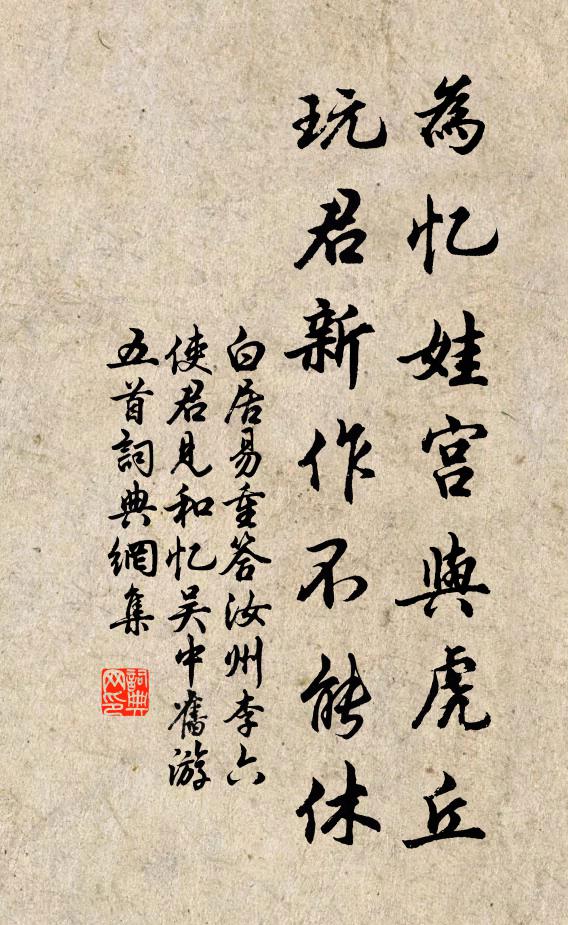 為忆娃宫與虎丘
玩君新作不能休
白居易重答汝州李六
使君見和忆吴中舊游
五首詞典網集
詞典
网印